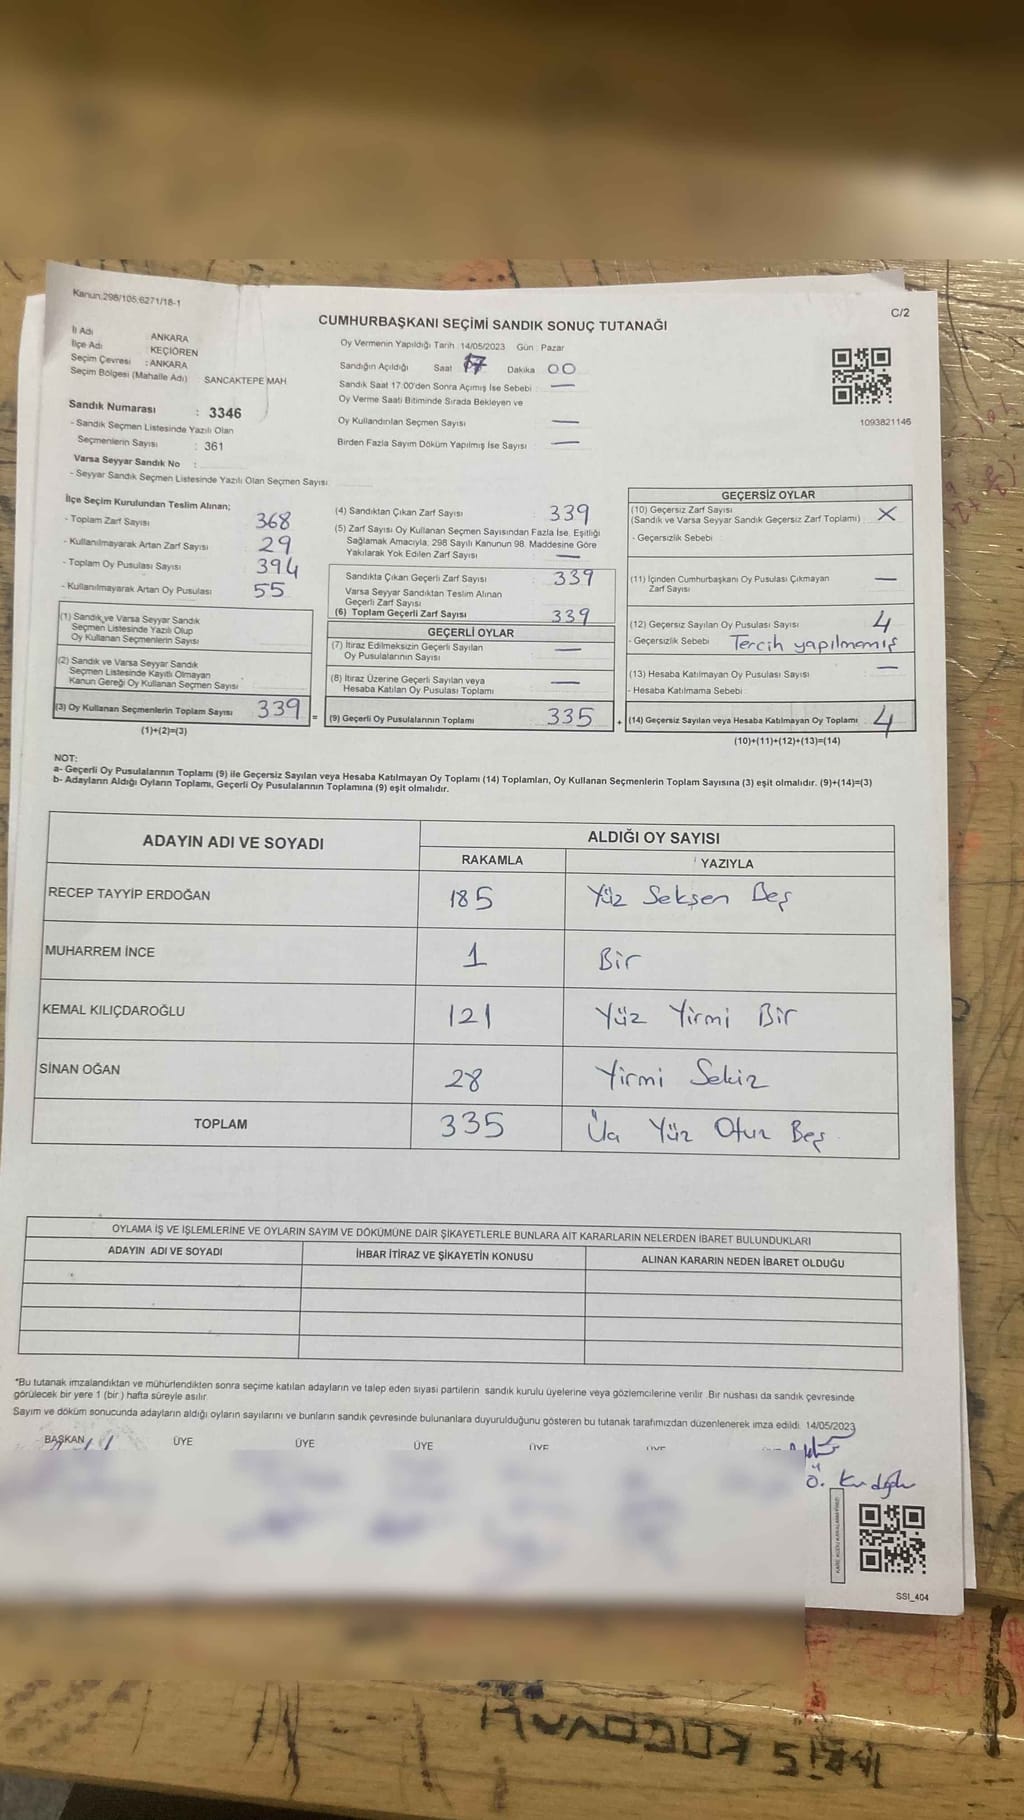 Kanun:298/105,6271/18-1
C/2
CUMHURBAŞKANI SEÇİMİ SANDIK SONUÇ TUTANAĞI
İl Adı : ANKARA
İlçe Adı : KEÇİÖREN
Seçim Çevresi : ANKARA
Seçim Bölgesi (Mahalle Adı) SANCAKTEPE MAH
Sandık Numarası : 3346
- Sandık Seçmen Listesinde Yazılı Olan
Seçmenlerin Sayısı : 361
Varsa Seyyar Sandık No :
- Seyyar Sandık Seçmen Listesinde Yazılı Olan Seçmen Sayısı
Oy Vermenin Yapıldığı Tarih : 14/05/2023 Gün : Pazar
Sandığın Açıldığı Saat 17 Dakika 00
Sandık Saat 17:00'den Sonra Açımış İse Sebebi —
Oy Verme Saati Bitiminde Sırada Bekleyen ve
Oy Kullandırılan Seçmen Sayısı —
Birden Fazla Sayım Döküm Yapılmış İse Sayısı —
1093821146
İlçe Seçim Kurulundan Teslim Alınan;
- Toplam Zarf Sayısı 368
- Kullanılmayarak Artan Zarf Sayısı 29
- Toplam Oy Pusulası Sayısı 394
- Kullanılmayarak Artan Oy Pusulası 55
(1) Sandık ve Varsa Seyyar Sandık
Seçmen Listesinde Yazılı Olup
Oy Kullanan Seçmenlerin Sayısı
(2) Sandık ve Varsa Seyyar Sandık
Seçmen Listesinde Kayıtlı Olmayan
Kanun Gereği Oy Kullanan Seçmen Sayısı
(3) Oy Kullanan Seçmenlerin Toplam Sayısı 339
(1)+(2)=(3)
(4) Sandıktan Çıkan Zarf Sayısı 339
(5) Zarf Sayısı Oy Kullanan Seçmen Sayısından Fazla İse, Eşitliği
Sağlamak Amacıyla, 298 Sayılı Kanunun 98. Maddesine Göre
Yakılarak Yok Edilen Zarf Sayısı —
Sandıkta Çıkan Geçerli Zarf Sayısı 339
Varsa Seyyar Sandıktan Teslim Alınan
Geçerli Zarf Sayısı
(6) Toplam Geçerli Zarf Sayısı 339
GEÇERLİ OYLAR
(7) İtiraz Edilmeksizin Geçerli Sayılan
Oy Pusulalarının Sayısı —
(8) İtiraz Üzerine Geçerli Sayılan veya
Hesaba Katılan Oy Pusulası Toplamı —
= (9) Geçerli Oy Pusulalarının Toplamı 335
GEÇERSİZ OYLAR
(10) Geçersiz Zarf Sayısı
(Sandık ve Varsa Seyyar Sandık Geçersiz Zarf Toplamı) X
- Geçersizlik Sebebi
(11) İçinden Cumhurbaşkanı Oy Pusulası Çıkmayan
Zarf Sayısı —
(12) Geçersiz Sayılan Oy Pusulası Sayısı 4
- Geçersizlik Sebebi Tercih yapılmamış
(13) Hesaba Katılmayan Oy Pusulası Sayısı —
- Hesaba Katılmama Sebebi
+ (14) Geçersiz Sayılan veya Hesaba Katılmayan Oy Toplamı 4
(10)+(11)+(12)+(13)=(14)
NOT:
a- Geçerli Oy Pusulalarının Toplamı (9) ile Geçersiz Sayılan veya Hesaba Katılmayan Oy Toplamı (14) Toplamları, Oy Kullanan Seçmenlerin Toplam Sayısına (3) eşit olmalıdır. (9)+(14)=(3)
b- Adayların Aldığı Oyların Toplamı, Geçerli Oy Pusulalarının Toplamına (9) eşit olmalıdır.
ADAYIN ADI VE SOYADI
ALDIĞI OY SAYISI
RAKAMLA YAZIYLA
RECEP TAYYİP ERDOĞAN 185 Yüz Seksen Beş
MUHARREM İNCE 1 Bir
KEMAL KILIÇDAROĞLU 121 Yüz Yirmi Bir
SİNAN OĞAN 28 Yirmi Sekiz
TOPLAM 335 Üç Yüz Otuz Beş
OYLAMA İŞ VE İŞLEMLERİNE VE OYLARIN SAYIM VE DÖKÜMÜNE DAİR ŞİKAYETLERLE BUNLARA AİT KARARLARIN NELERDEN İBARET BULUNDUKLARI
ADAYIN ADI VE SOYADI İHBAR İTİRAZ VE ŞİKAYETİN KONUSU ALINAN KARARIN NEDEN İBARET OLDUĞU
*Bu tutanak imzalandıktan ve mühürlendikten sonra seçime katılan adayların ve talep eden siyasi partilerin sandık kurulu üyelerine veya gözlemcilerine verilir. Bir nüshası da sandık çevresinde
görülecek bir yere 1 (bir) hafta süreyle asılır.
Sayım ve döküm sonucunda adayların aldığı oyların sayılarını ve bunların sandık çevresinde bulunanlara duyurulduğunu gösteren bu tutanak tarafımızdan düzenlenerek imza edildi. 14/05/2023
BAŞKAN ÜYE ÜYE ÜYE ÜYE ÜYE
SSI_404